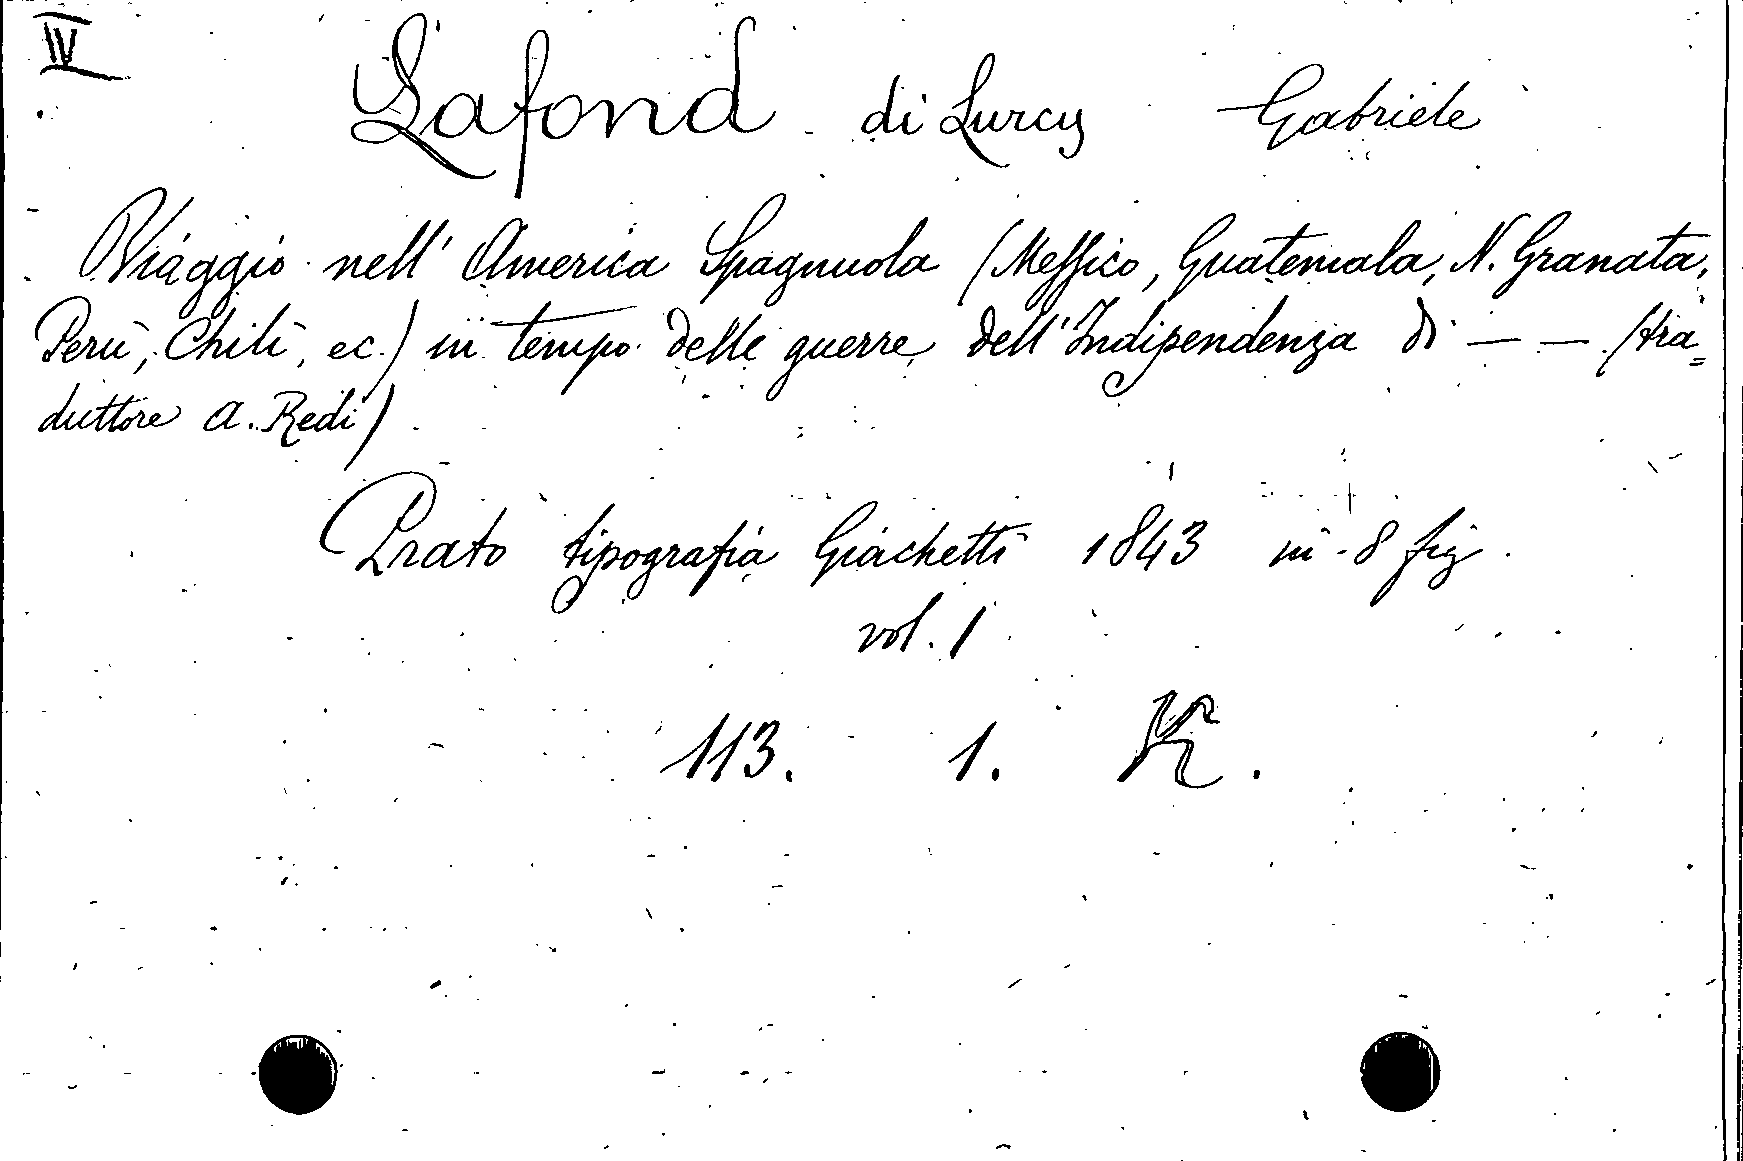 IV
Lafond di Lurcy Gabriele
Viaggio nell' America Spagnuola (Messico, Guatemala, N. Granata,
Perù, Chilì, ec.) in tempo delle guerre dell' Indipendenza di — — (tra=
duttore A. Redi)
Prato tipografia Giachetti 1843 in-8 fig.
vol. 1
113. 1. K.